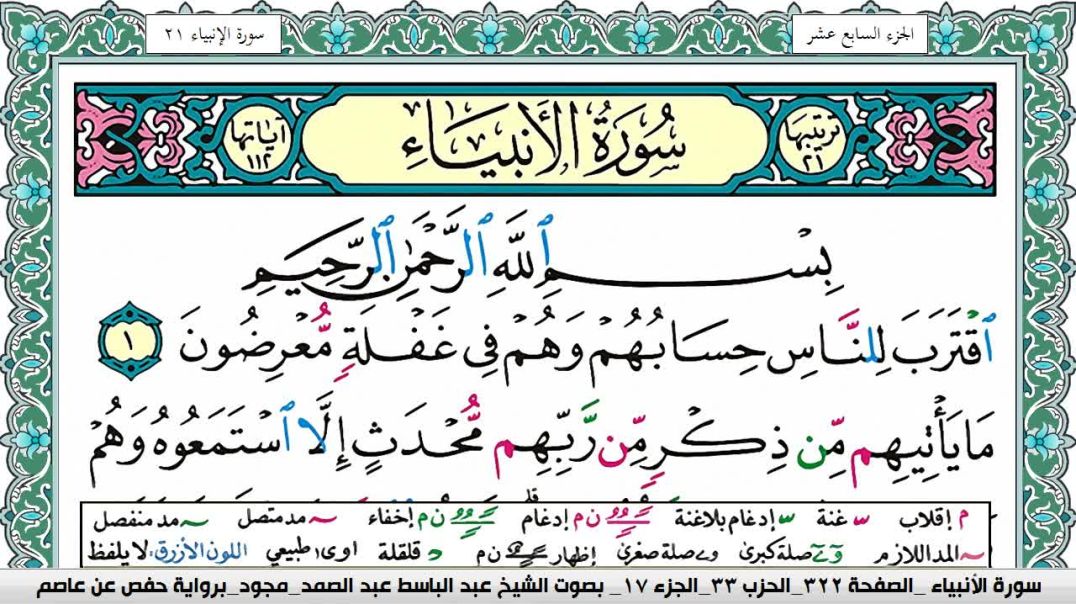 الجزء السابع عشر
سورة الإنبياء ٢١
ترتيبها ٢١
سُورَةُ الأَنبِيَاءِ
آياتها ١١٢
بِسْمِ ٱللَّهِ ٱلرَّحْمَٰنِ ٱلرَّحِيمِ
ٱقْتَرَبَ لِلنَّاسِ حِسَابُهُمْ وَهُمْ فِى غَفْلَةٍ مُّعْرِضُونَ ١
مَا يَأْتِيهِم مِّن ذِكْرٍ مِّن رَّبِّهِم مُّحْدَثٍ إِلَّا ٱسْتَمَعُوهُ وَهُمْ
م إقلاب غنة إدغام بلاغنة ن م إدغام ن م إخفاء مد متصل مد منفصل
المد اللازم صلة كبرى صلة صغرى إظهار ن م قلقلة اوى ا طبيعي اللون الأزرق: لا يلفظ
سورة الأنبياء _الصفحة ٣٢٢_الحزب ٣٣_الجزء ١٧_ بصوت الشيخ عبد الباسط عبد الصمد_مجود_برواية حفص عن عاصم